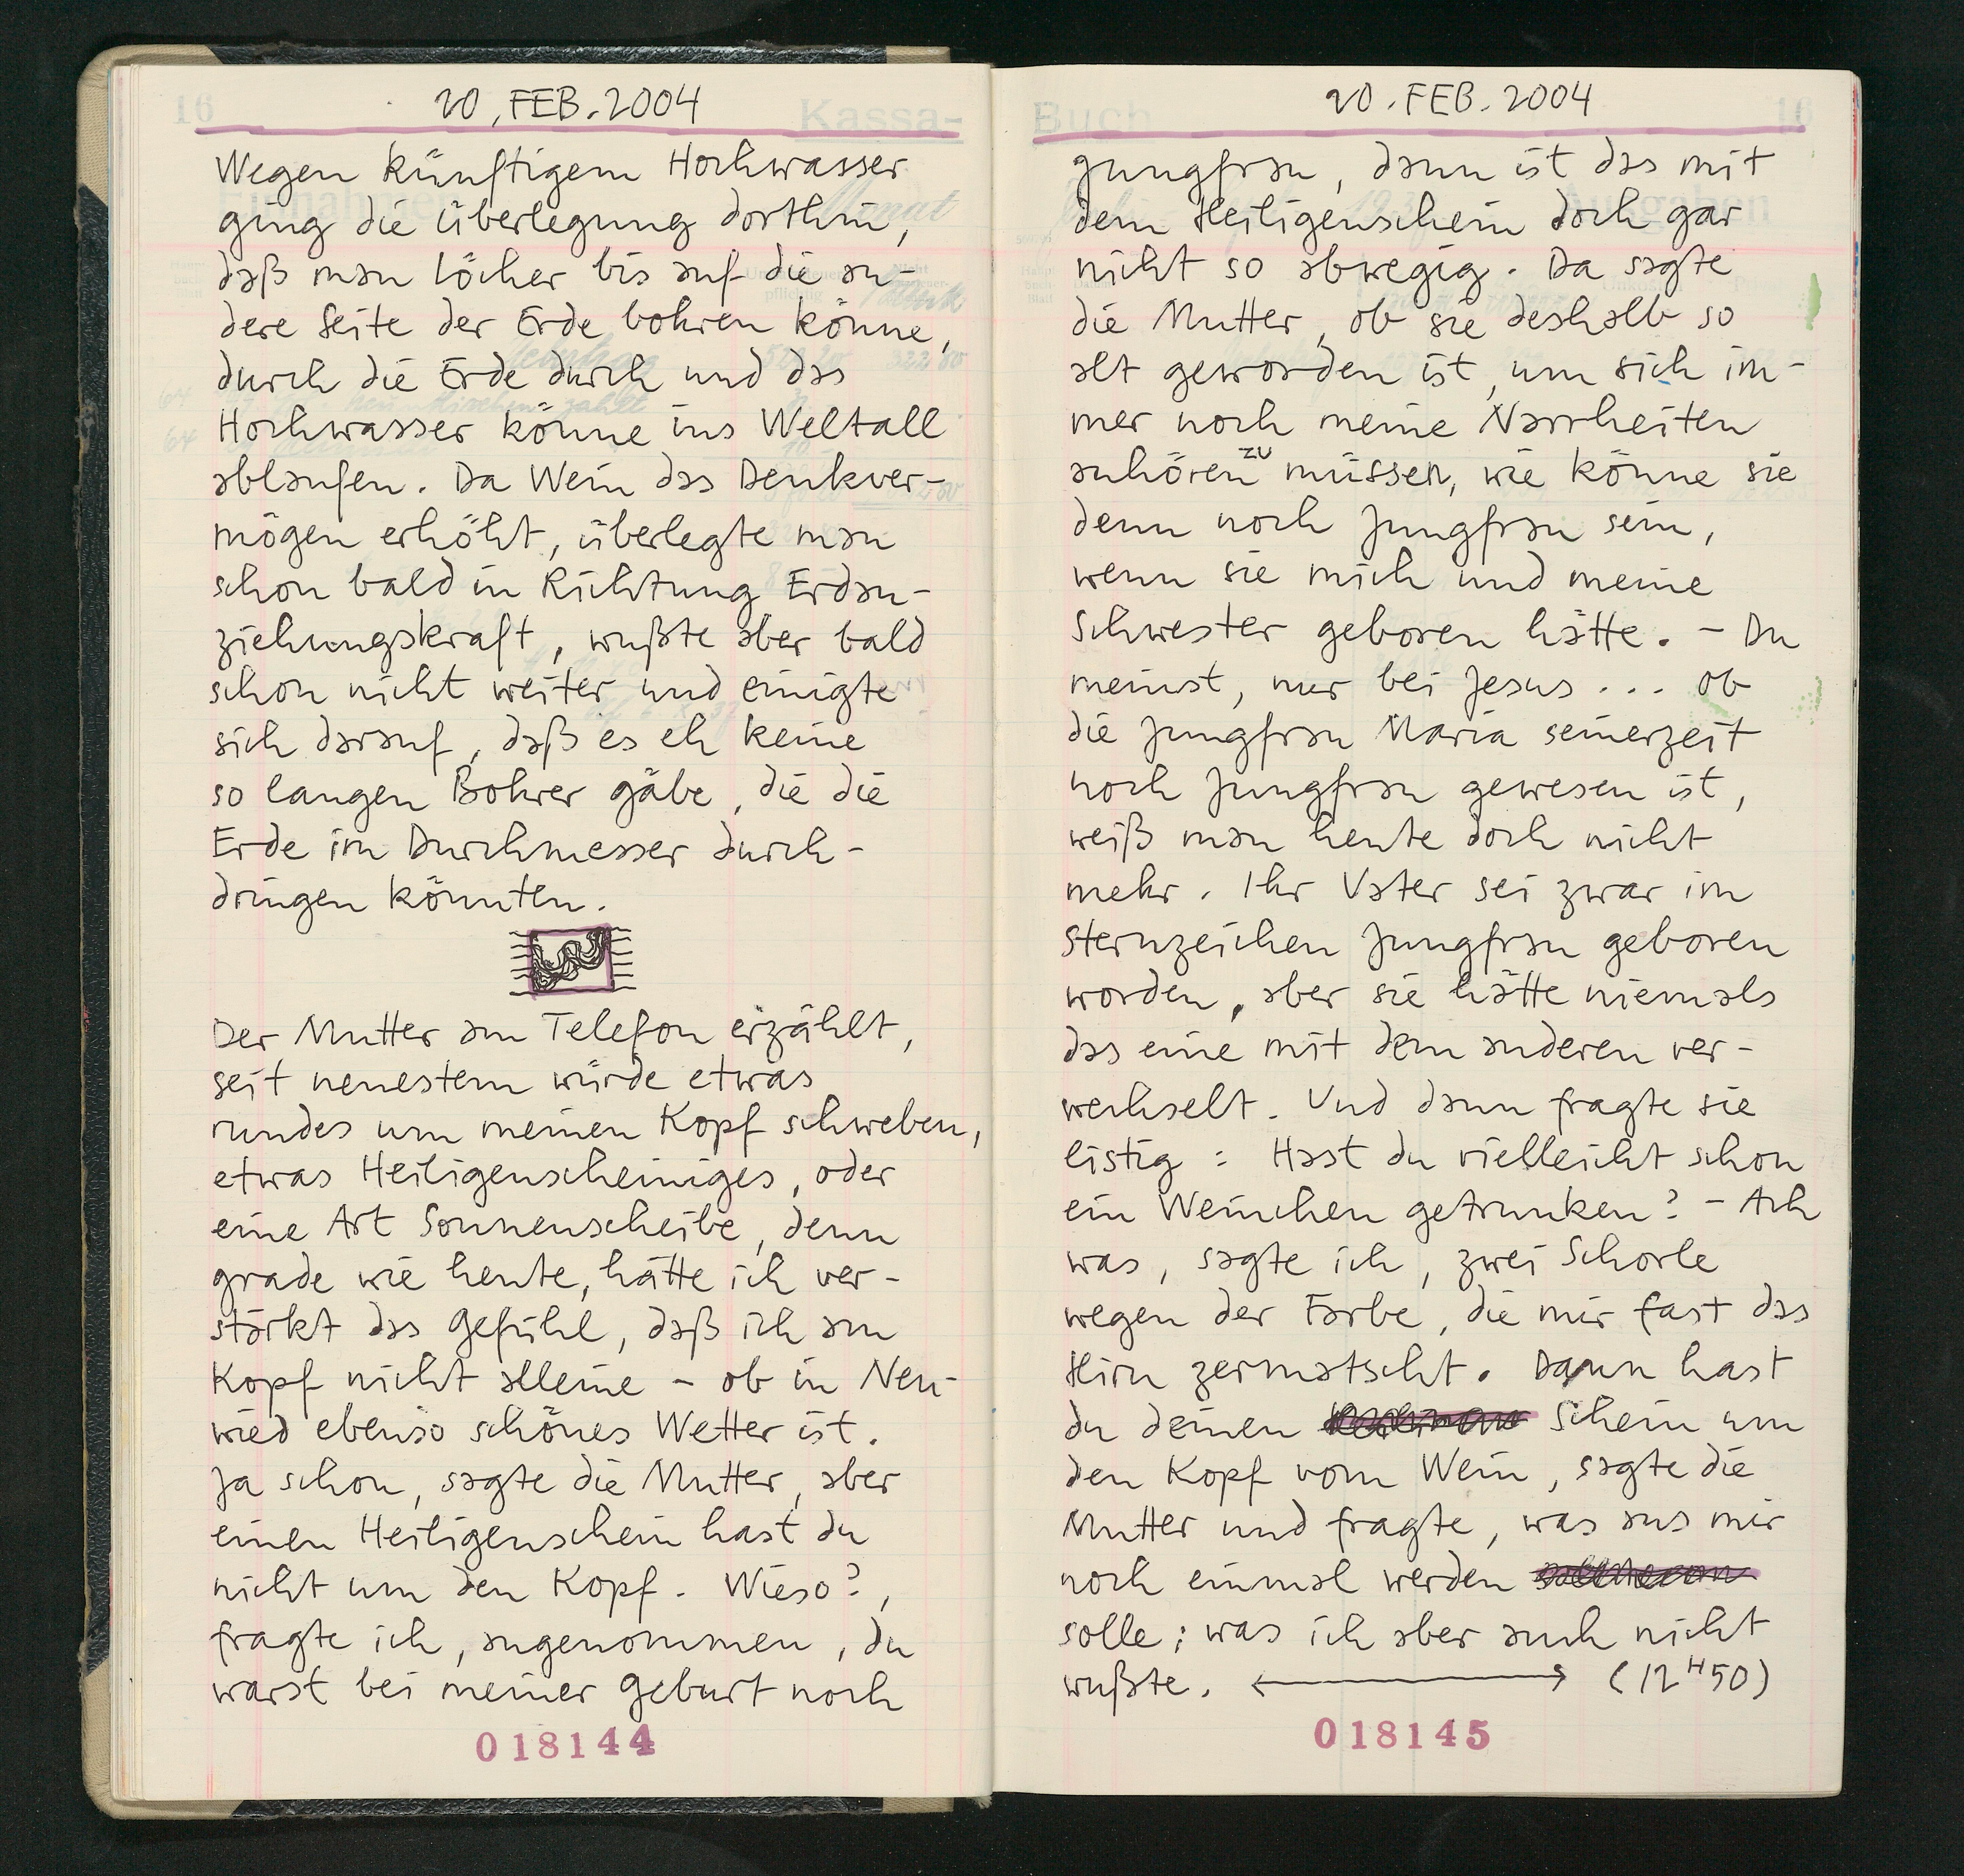 16 20. FEB. 2004 Kassa-
Wegen künftigem Hochwasser
ging die Überlegung dorthin,
daß man Löcher bis auf die an-
dere Seite der Erde bohren könne,
durch die Erde durch und das
Hochwasser könne ins Weltall
ablaufen. Da Wein das Denkver-
mögen erhöht, überlegte man
schon bald in Richtung Erdan-
ziehungskraft, wußte aber bald
schon nicht weiter und einigte
sich darauf, daß es eh keine
so langen Bohrer gäbe, die die
Erde im Durchmesser durch-
dringen könnten.
Der Mutter am Telefon erzählt,
seit neuestem würde etwas
rundes um meinen Kopf schweben,
etwas Heiligenscheiniges, oder
eine Art Sonnenscheibe, denn
grade wie heute, hätte ich ver-
stärkt das Gefühl, daß ich am
Kopf nicht alleine – ob in Neu-
wied ebenso schönes Wetter ist.
Ja schon, sagte die Mutter, aber
einen Heiligenschein hast du
nicht um den Kopf. Wieso?,
fragte ich, angenommen, du
warst bei meiner Geburt noch
018144
Buch 20. FEB. 2004 16
Jungfrau, dann ist das mit
dem Heiligenschein doch gar
nicht so abwegig. Da sagte
die Mutter, ob sie deshalb so
alt geworden ist, um sich im-
mer noch meine Narrheiten
anhören zu müssen, wie könne sie
denn noch Jungfrau sein,
wenn sie mich und meine
Schwester geboren hätte. – Du
meinst, nur bei Jesus ... ob
die Jungfrau Maria seinerzeit
noch Jungfrau gewesen ist,
weiß man heute doch nicht
mehr. Ihr Vater sei zwar im
Sternzeichen Jungfrau geboren
worden, aber sie hätte niemals
das eine mit dem anderen ver-
wechselt. Und dann fragte sie
listig: Hast du vielleicht schon
ein Weinchen getrunken? – Ach
was, sagte ich, zwei Schorle
wegen der Farbe, die mir fast das
Hirn zermatscht. Dann hast
du deinen Schein um
den Kopf vom Wein, sagte die
Mutter und fragte, was aus mir
noch einmal werden
solle; was ich aber auch nicht
wußte. ⟷ (12H50)
018145